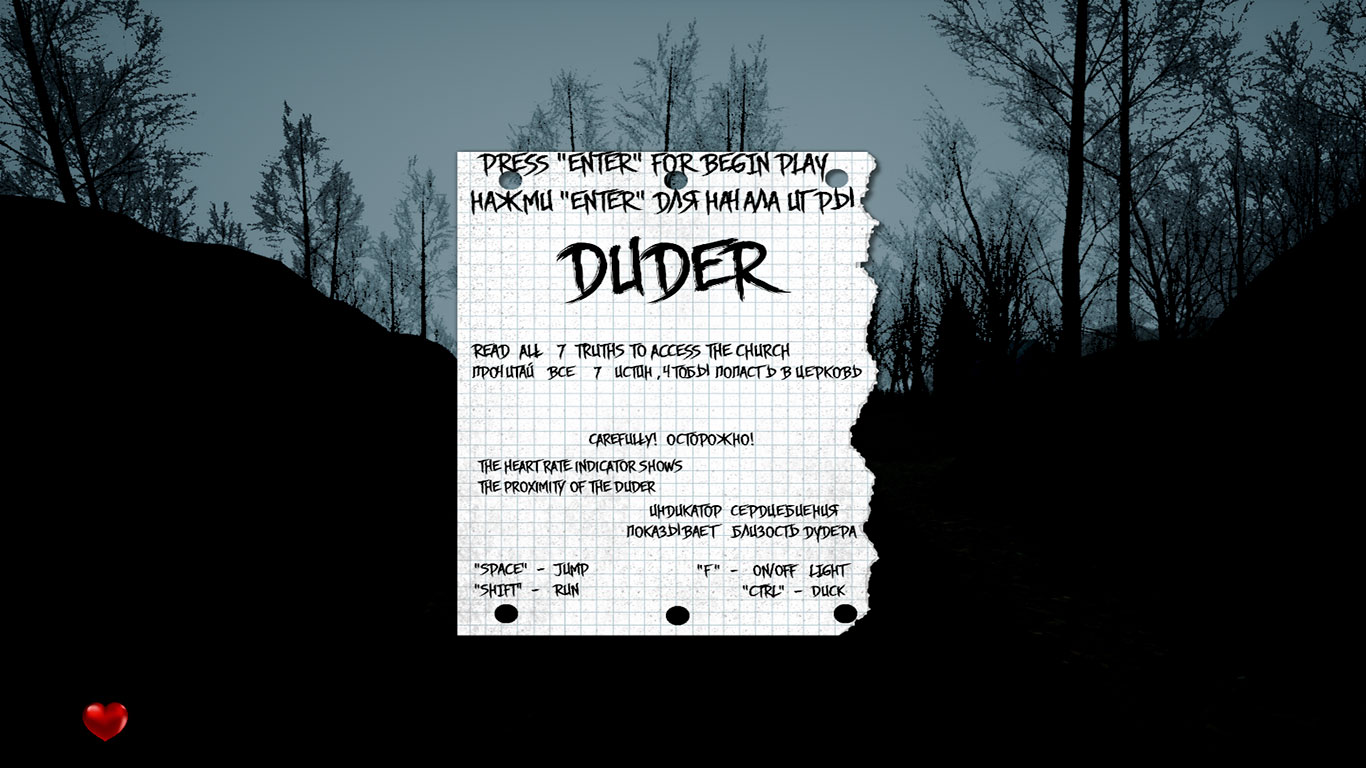 PRESS "ENTER" FOR BEGIN PLAY
НАЖМИ "ENTER" ДЛЯ НАЧАЛА ИГРЫ
DUDER
READ ALL 7 TRUTHS TO ACCESS THE CHURCH
ПРОЧИТАЙ ВСЕ 7 ИСТИН, ЧТОБЫ ПОПАСТЬ В ЦЕРКОВЬ
CAREFULLY! ОСТОРОЖНО!
THE HEART RATE INDICATOR SHOWS
THE PROXIMITY OF THE DUDER
ИНДИКАТОР СЕРДЦЕБИЕНИЯ
ПОКАЗЫВАЕТ БЛИЗОСТЬ ДУДЕРА
"SPACE" - JUMP "F" - ON/OFF LIGHT
"SHIFT" - RUN "CTRL" - DUCK